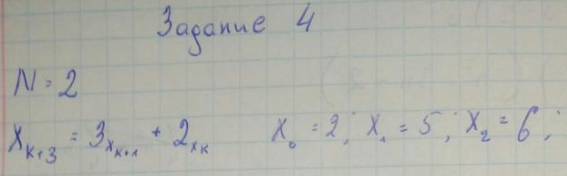 Задание 4
N = 2
x_{k+3} = 3x_{k+1} + 2x_k x_0 = 2; x_1 = 5; x_2 = 6;